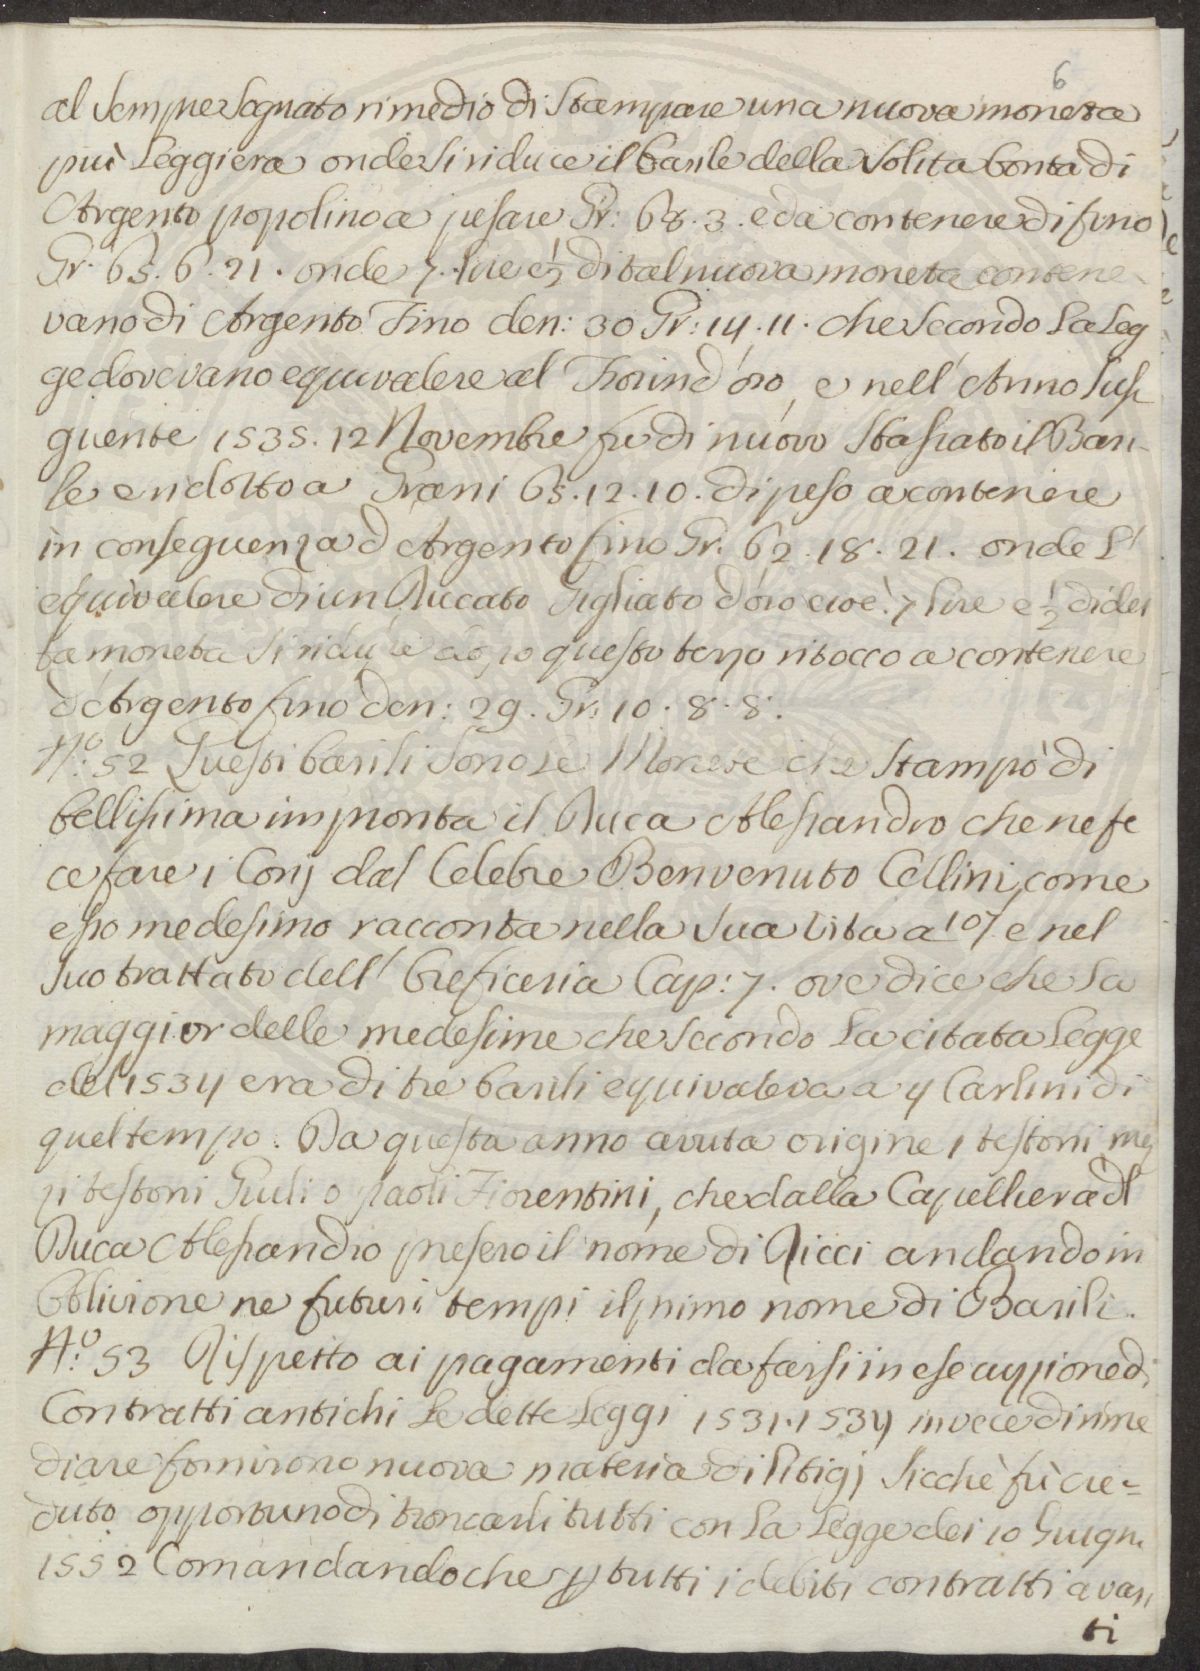 6
al sempre sognato rimedio di stampare una nuova moneta
più Leggiera onde si riduce il barile della solita bontà di
Argento popolino a pesare Gr: 68. 3. e da contenere di fino
Gr. 65. 6. 21. onde 7. lire e ½ di tal nuova moneta contene
vano di Argento Fino den: 30 Gr: 14. 11. che secondo La Leg
ge dovevano equivalere al Fiorin d'oro, e nell'Anno suss
guente 1535. 12 Novembre fu di nuovo Stassato il Bari-
le e ridotto a Grani 65. 12. 10. di peso a contenere
in conseguenza d'Argento fino Gr. 62. 18. 21. onde L'
equivalere di un Ducato Gigliato d'oro cioè 7 lire e ½ di det
ta moneta si riduce dopo questo terzo ritocco a contenere
d'Argento fino den: 29. Gr: 10. 8. 8.
N.º 52 Questi barili sono le Monete che stampò di
bellissima impronta il Duca Alessandro che ne fe
ce fare i Conj dal Celebre Benvenuto Cellini, come
esso medesimo racconta nella sua Vita a 107 e nel
suo trattato dell'Oreficeria Cap: 7. ove dice che La
maggior delle medesime che secondo La citata Legge
del 1534 era di tre barili equivaleva a 4 Carlini di
quel tempo. Da questa anno avuta origine i testoni mez
zi testoni Giuli o paoli Fiorentini, che dalla Capelliera dl
Duca Alessandro presero il nome di Ricci andando in
Oblivione ne futuri tempi il primo nome di Barili.
N.º 53 Rispetto ai pagamenti da farsi in esecuzione di
Contratti antichi Le dette Leggi 1531. 1534 in vece di rime
diare fornirono nuova materia di litigj sicchè fù cre=
duto opportuno di troncarli tutti con La Legge dei 10 Giugn.
1552 Comandando che p tutti i debiti contratti avan
ti